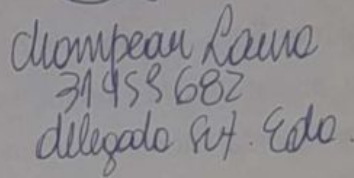 Chompean Laura
31959682
delegado Sut. Edo.